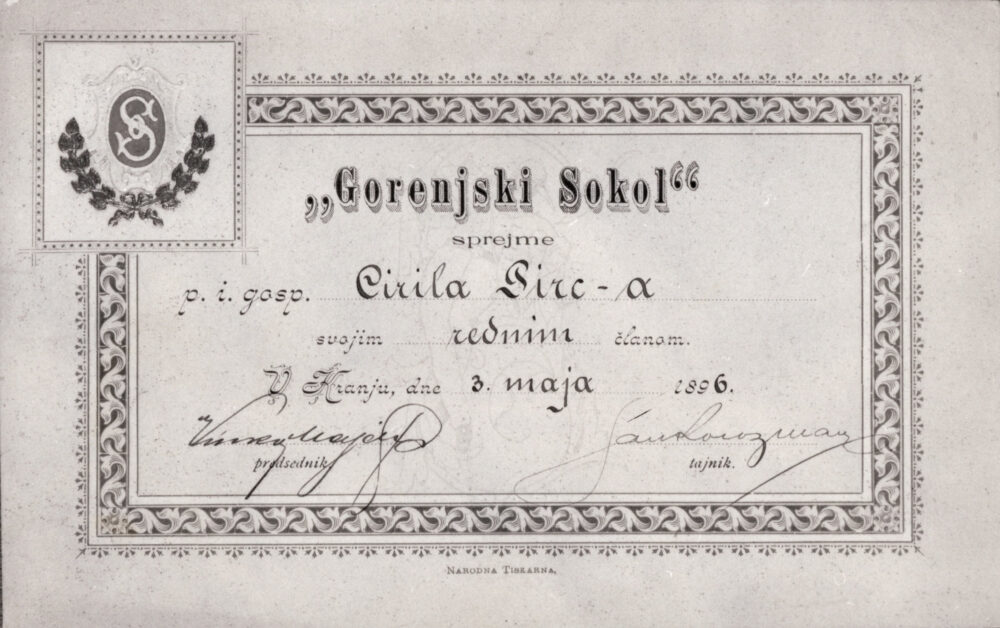 „Gorenjski Sokol“
sprejme
p. i. gosp. Cirila Pirc-a
svojim rednim članom.
V Kranju, dne 3. maja 1896.
Vinko Majdič
predsednik
tajnik.
NARODNA TISKARNA,